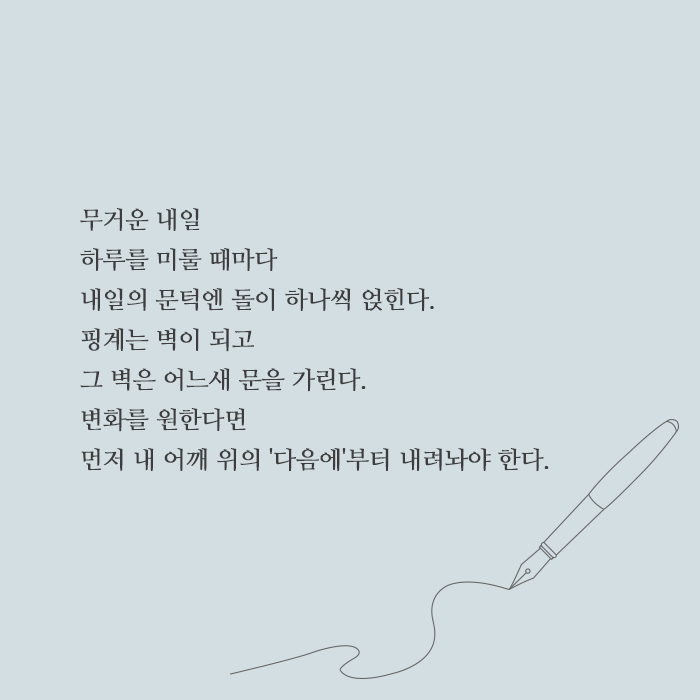 무거운 내일
하루를 미룰 때마다
내일의 문턱엔 돌이 하나씩 얹힌다.
핑계는 벽이 되고
그 벽은 어느새 문을 가린다.
변화를 원한다면
먼저 내 어깨 위의 '다음에'부터 내려놔야 한다.